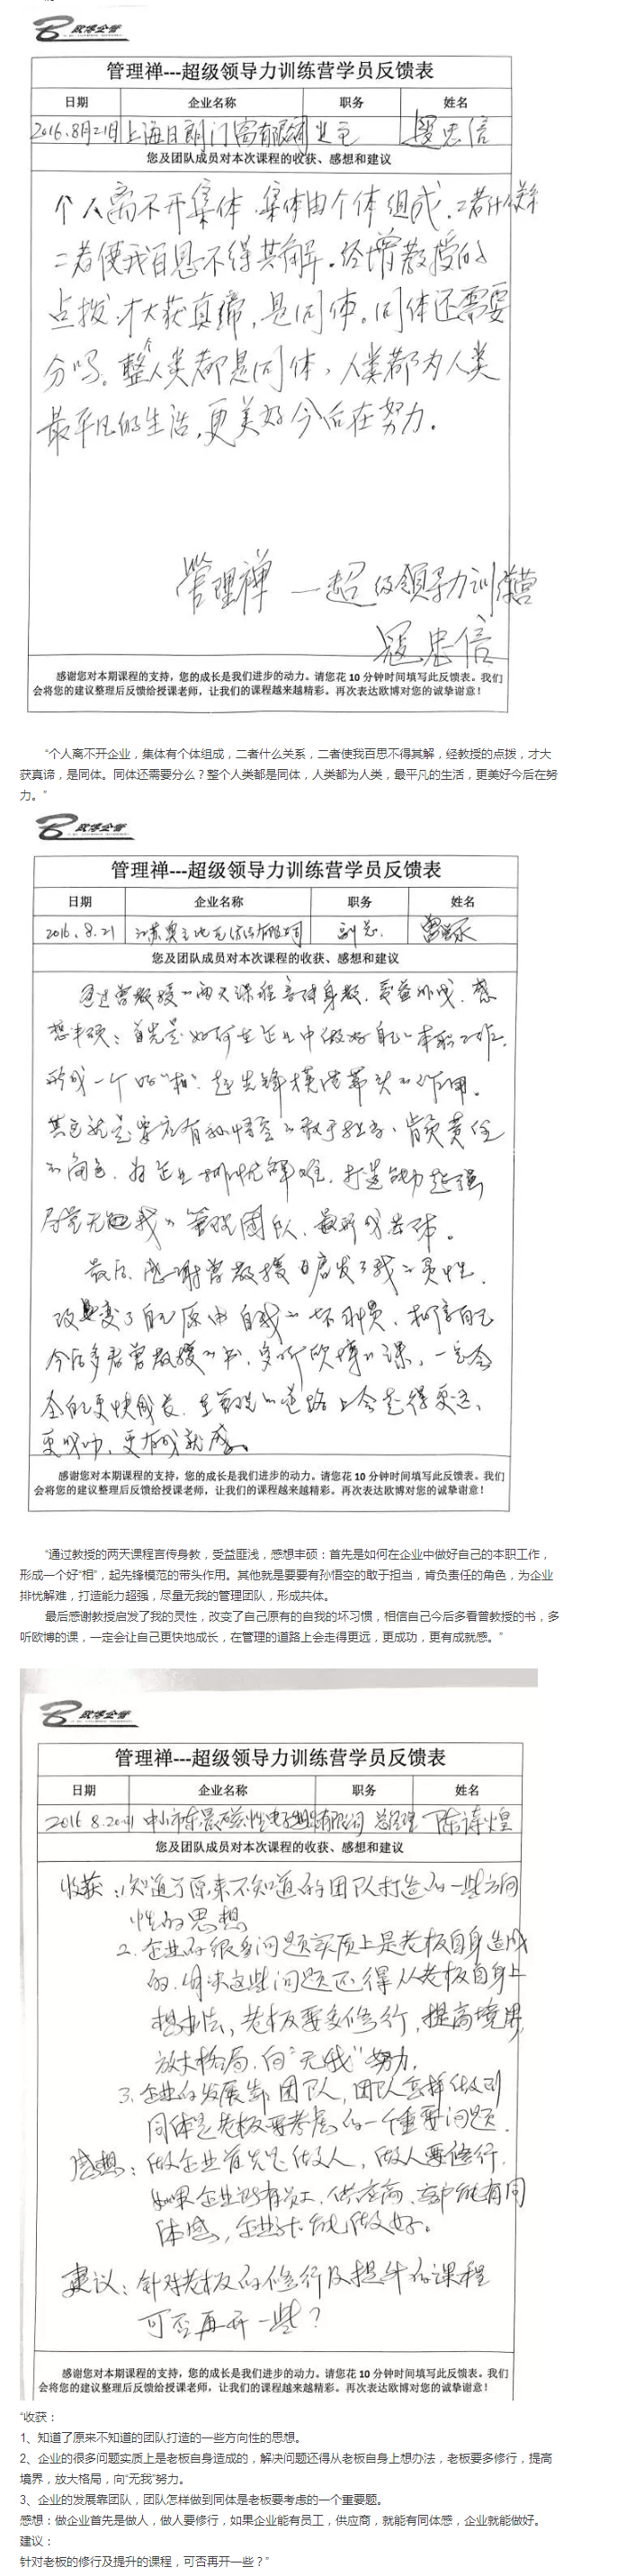 欧博企管
管理禅---超级领导力训练营学员反馈表
日期 企业名称 职务 姓名
2016.8月21日 上海日朗门窗有限公司 忠信
您及团队成员对本次课程的收获、感想和建议
个人离不开集体,集体由个体组成,二者什么关系
二者使我百思不得其解.经增教授的
点拨,才大获真谛,是同体。同体还需要
分吗。整个人类都是同体,人类都为人类
最平凡的生活,更美好今后在努力.
管理禅—超级领导力训练营
忠信
感谢您对本期课程的支持,您的成长是我们进步的动力。请您花 10 分钟时间填写此反馈表。我们
会将您的建议整理后反馈给授课老师,让我们的课程越来越精彩。再次表达欧博对您的诚挚谢意!
“个人离不开企业,集体有个体组成,二者什么关系,二者使我百思不得其解,经教授的点拨,才大
获真谛,是同体。同体还需要分么?整个人类都是同体,人类都为人类,最平凡的生活,更美好今后在努
力。”
欧博企管
管理禅---超级领导力训练营学员反馈表
日期 企业名称 职务 姓名
2016.8.21 副总
您及团队成员对本次课程的收获、感想和建议
通过曾教授的两天课程言传身教,受益匪浅,感
想丰硕:首先是如何在企业中做好自己的本职工作,
形成一个好“相”,起先锋模范带头的作用。
其它就是要有孙悟空的敢于担当、肯负责任
的角色,为企业排忧解难,打造能力超强
尽量无我的管理团队,最形成共体。
最后,感谢曾教授启发了我的灵性,
改变了自己原由自我的坏习惯,相信自己
今后多看曾教授的书,多听欧博的课,一定会
会自己更快成长,在管理的道路上会走得更远、
更成功、更有成就感。
感谢您对本期课程的支持,您的成长是我们进步的动力。请您花 10 分钟时间填写此反馈表。我们
会将您的建议整理后反馈给授课老师,让我们的课程越来越精彩。再次表达欧博对您的诚挚谢意!
“通过教授的两天课程言传身教,受益匪浅,感想丰硕:首先是如何在企业中做好自己的本职工作,
形成一个好“相”,起先锋模范的带头作用。其他就是要要有孙悟空的敢于担当,肯负责任的角色,为企业
排忧解难,打造能力超强,尽量无我的管理团队,形成共体。
最后感谢教授启发了我的灵性,改变了自己原有的自我的坏习惯,相信自己今后多看曾教授的书,多
听欧博的课,一定会让自己更快地成长,在管理的道路上会走得更远,更成功,更有成就感。”
欧博企管
管理禅---超级领导力训练营学员反馈表
日期 企业名称 职务 姓名
2016 8.20-21 中山市东晨磁性电子制品有限公司 总经理 陈涛煌
您及团队成员对本次课程的收获、感想和建议
收获:1、知道了原来不知道的团队打造的一些方向
性的思想
2.企业的很多问题实质上是老板自身造成
的,解决这些问题还得从老板自身上
想办法,老板要多修行,提高境界,
放大格局,向“无我”努力.
3.企业的发展靠团队,团队怎样做到
同体是老板要考虑的一个重要问题.
感想:做企业首先是做人,做人要修行.
如果企业所有员工、供应商、客户能有同
体感,企业才能做好。
建议:针对老板的修行及提升的课程
可否再开一些?
感谢您对本期课程的支持,您的成长是我们进步的动力。请您花 10 分钟时间填写此反馈表。我们
会将您的建议整理后反馈给授课老师,让我们的课程越来越精彩。再次表达欧博对您的诚挚谢意!
“收获:
1、知道了原来不知道的团队打造的一些方向性的思想。
2、企业的很多问题实质上是老板自身造成的,解决问题还得从老板自身上想办法,老板要多修行,提高
境界,放大格局,向“无我”努力。
3、企业的发展靠团队,团队怎样做到同体是老板要考虑的一个重要题。
感想:做企业首先是做人,做人要修行,如果企业能有员工,供应商,就能有同体感,企业就能做好。
建议:
针对老板的修行及提升的课程,可否再开一些?”